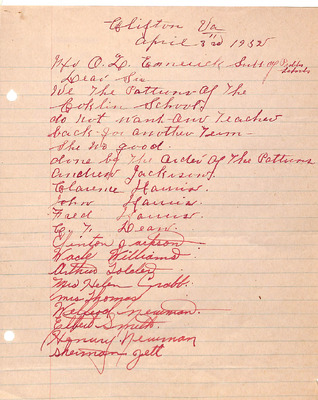 Clifton Va
April 3rd 1932
Mr O. L. Emerick Supt of Public Schools
Dear Sir
We The Pattrons Of The
Conklin School
do Not Want Our Teacher
back for another Term
She no good.
done by The Order Of The Pattrons
Andrew Jackson
Clarence Harris.
John Harris.
Fred Harris.
C. T. Dean.
Clinton Jackson
Wade Williams
Arthur
Mrs Helen
Mrs Thomas
Newman.
Elbert Smith.
Newman
Sherman